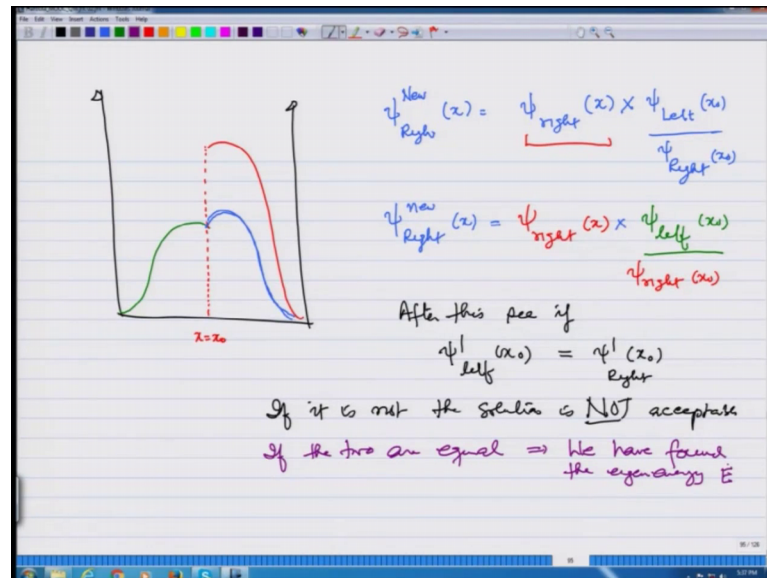 File Edit View Insert Actions Tools Help
ψ^New_Right (x) = ψ_right (x) × ψ_Left (x₀) / ψ_Right (x₀)
ψ^new_Right (x) = ψ_right (x) × ψ_left (x₀) / ψ_right (x₀)
x=x₀
After this see if
ψ'_left (x₀) = ψ'_Right (x₀)
If it is not the solution is NOT acceptable
If the two are equal ⇒ We have found
the eigenenergy E
95
5:37 PM